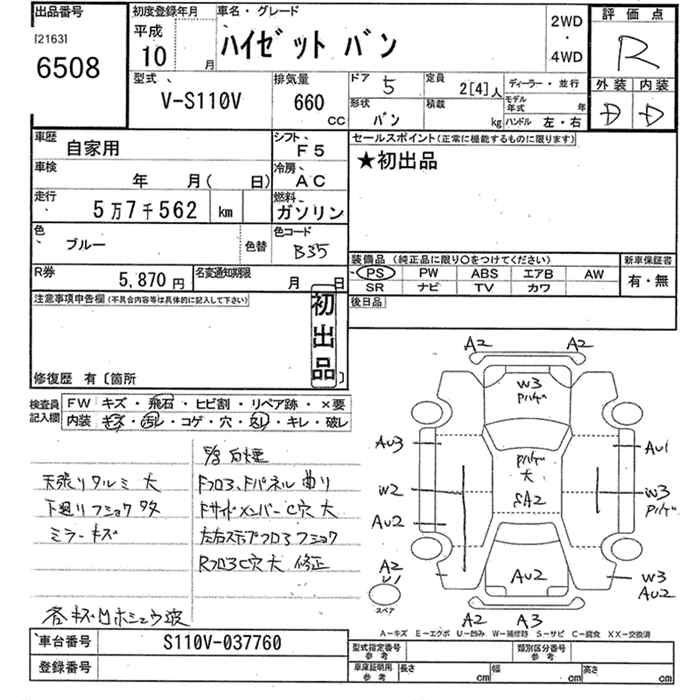 出品番号 初度登録年月 車名・グレード 2WD・4WD 評価点
[2163] 平成 ハイゼット バン R
6508 10 月 外装 内装
型式 排気量 ドア 5 定員 2[4]人 ディーラー・並行 D D
V-S110V 660 cc 形状 バン 積載 kg モデル年式 年 ハンドル 左・右
車歴 自家用 シフト F5 セールスポイント(正常に機能するものに限ります)
車検 年 月( 日) 冷房 AC ★初出品
走行 5万7千562 km 燃料 ガソリン
色 ブルー 色替 色コード B35
装備品 (純正品に限り○をつけてください) 新車保証書
PS PW ABS エアB AW 有・無
SR ナビ TV カワ
R券 5,870円 名変通知期限 月 日 後日品
注意事項申告欄(不具合内容等は具体的に記入して下さい) 初出品
修復歴 有〔箇所 〕
検査員記入欄 FW キズ・飛石・ヒビ割・リペア跡・×要
内装 キズ・汚レ・コゲ・穴・欠レ・キレ・破レ
天張りタルミ 大 Fフロア、Fパネル 曲り
下廻りフショク 多 FサイドメンバーC穴 大
ミラーキズ 左右ステップフロアフショク
RフロアC穴大 修正
A2 A2
W3
Pハゲ
AU3 AU1
Pハゲ
大
SA2
W2 W3
Pハゲ
AU2
A2
U1
AU2 W3
AU2
スペア
A2 A3
A-キズ E-エクボ U-凹み W-補修跡 S-サビ C-腐食 XX-交換済
車台番号 S110V-037760 型式指定番号 参考 類別区分番号 参考
登録番号 車庫証明用 参考 長さ cm 幅 cm 高さ cm